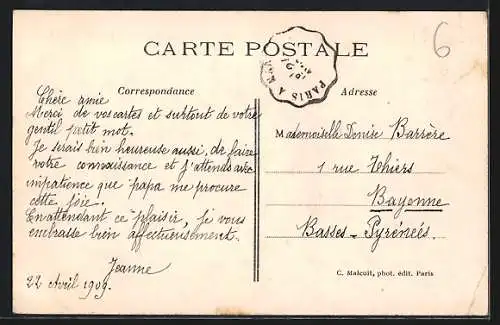 6
CARTE POSTALE
PARIS A
Correspondance
Adresse
Chère amie
Merci de vos cartes et surtout de votre
gentil petit mot.
Je serais bien heureuse aussi, de faire
votre connaissance et j'attends avec
impatience que papa me procure
cette joie.
En attendant ce plaisir, je vous
embrasse bien affectueusement.
Jeanne
22 Avril 1909.
Mademoiselle Denise Barrère
1 rue Thiers
Bayonne
Basses-Pyrénées.
C. Malcuit, phot. édit. Paris